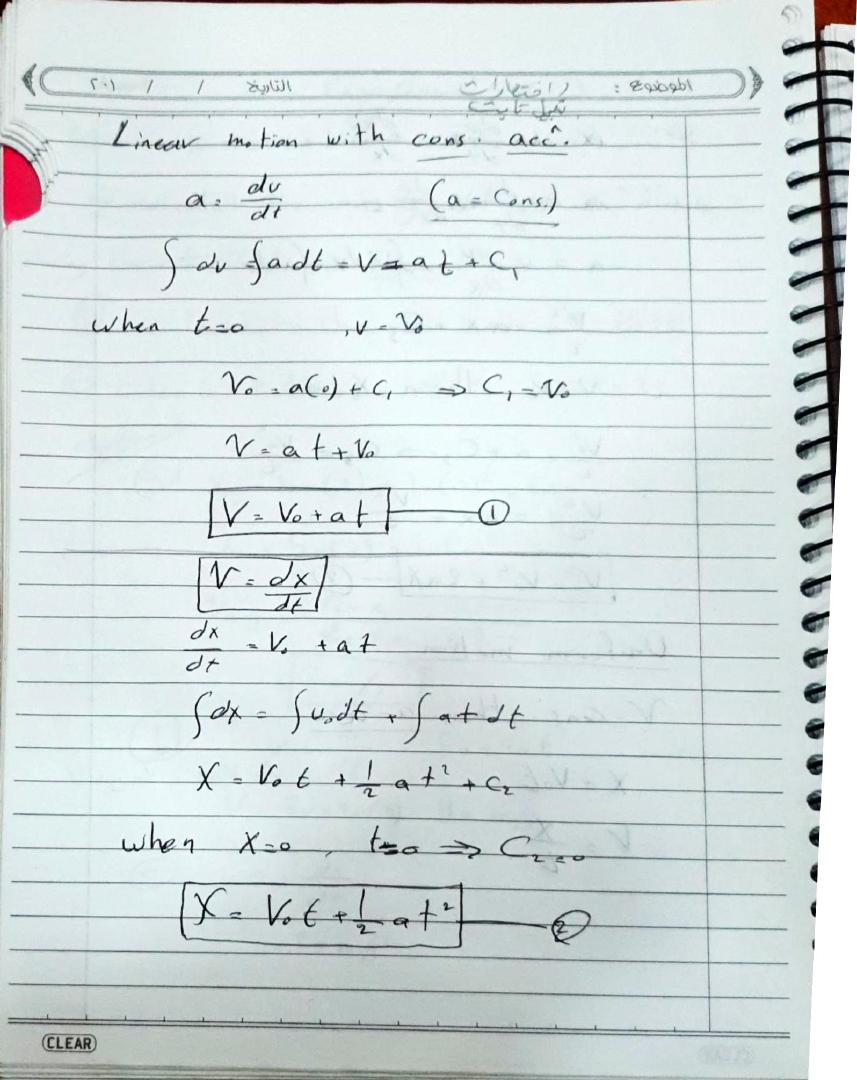 الموضوع : التاريخ / / ٢٠١
Linear motion with cons. acc.
a = dv/dt (a = Cons.)
∫ dv = ∫ a dt = V = a t + C₁
when t=0 , v = V₀
V₀ = a(0) + C₁ ⇒ C₁ = V₀
V = a t + V₀
V = V₀ + a t ①
V = dx/dt
dx/dt = V₀ + a t
∫ dx = ∫ v₀ dt + ∫ a t dt
X = V₀ t + 1/2 a t² + C₂
when X=0 , t=0 ⇒ C₂=0
X = V₀ t + 1/2 a t² ②
CLEAR